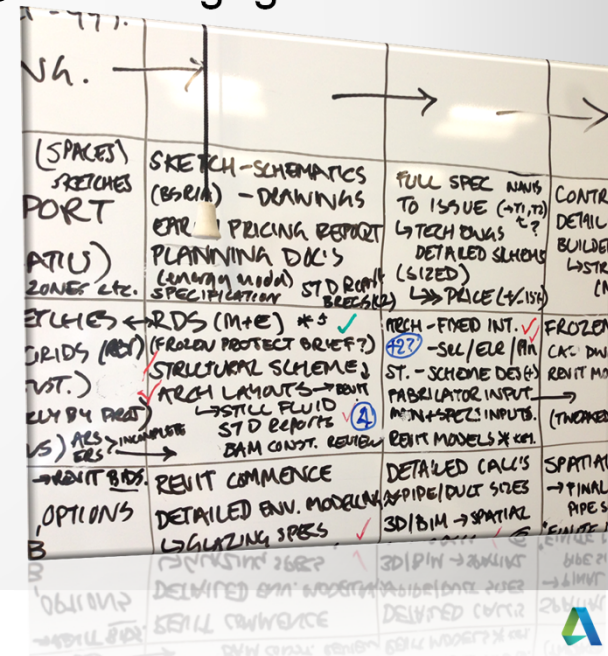 NG.
(SPACES)
SKETCHES
PORT
ZONES etc.
SKETCH-SCHEMATICS
(BSRIA) - DRAWINGS
PRICING REPORT
PLANNING DOC'S
(energy model)
SPECIFICATION STD Report
FULL SPEC NAVIS
TO ISSUE (→T1,T2)
↳ TECH DWGS t?
DETAILED SCHEMS
(SIZED)
↳» PRICE (+/-15%)
CONTR
DETAIL
BUILDE
↳STR
ETCHES ↔ RDS (M+E) *5 ✓
GRIDS
(FROZEN PROJECT BRIEF?)
STRUCTURAL SCHEMES
✓ ARCH LAYOUTS → REVIT
↳ STILL FLUID
STD REPORTS ✓ 4
BAM CONST. REVIEW
ARS
ERS > INCOMPLETE
ARCH - FIXED INT. ✓
+2? -SEC/ELE/PLN
ST. - SCHEME DES(+)
FABRICATOR INPUT →
MAN+SPEC. INPUTS.
REVIT MODELS *
FROZEN
CAT DW
REVIT MO
(TWEAKED
→REVIT BIDS.
OPTIONS
B
REVIT COMMENCE
DETAILED ENV. MODELING
↳GLAZING SPECS ✓
DETAILED CALC'S
PIPE/DUCT SIZES
3D/BIM → SPATIAL
SPATIAL
→FINAL
PIPE S